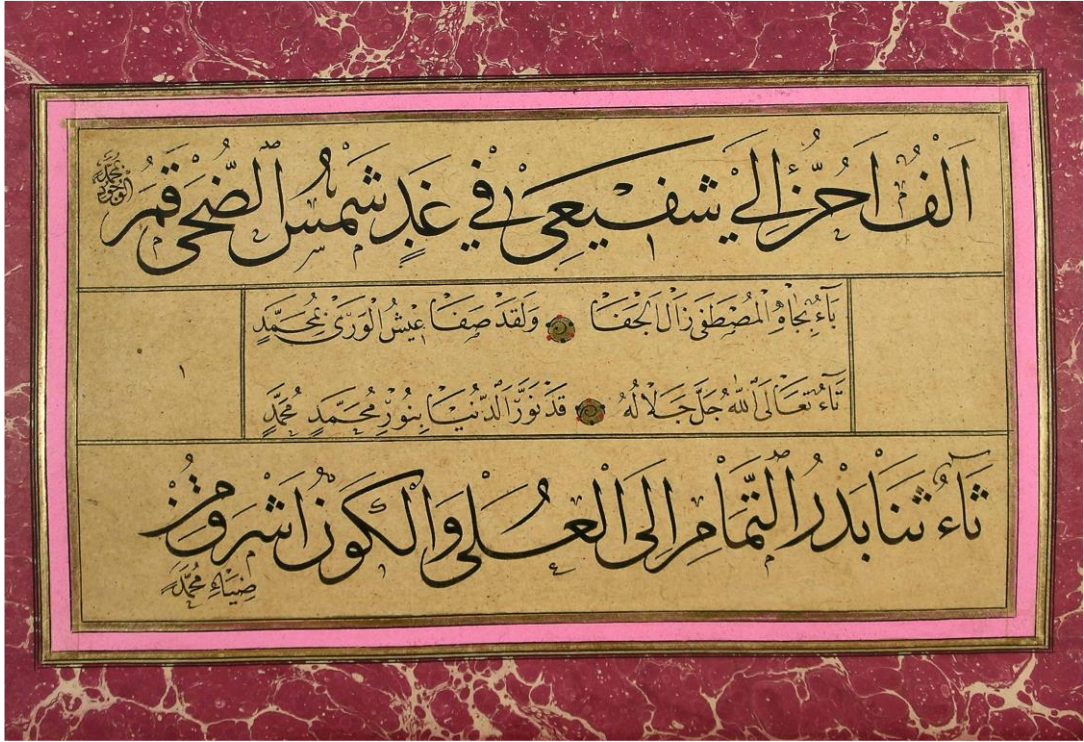 اَلِفٌ اَحُنُّ اِلَى شَفِيعِى فِى غَدٍ شَمْسُ الضُّحَى قَمَرُ
الوجود محمد
بَاءٌ بِجَاهِ الْمُصْطَفَى زَالَ الْجَفَا وَلَقَدْ صَفَا عَيْشُ الْوَرَى بِمُحَمَّدٍ
تَاءٌ تَعَالَى اللهُ جَلَّ جَلَالُهُ قَدْ نَوَّرَ الدُّنْيَا بِنُورِ مُحَمَّدٍ مُحَمَّدٍ
١
ثَاءٌ ثَنَا بَدْرُ التَّمَامِ اِلَى الْعُلَى وَالْكَوْنُ اَشْرَقَ مِنْ
ضِيَاءِ مُحَمَّدٍ